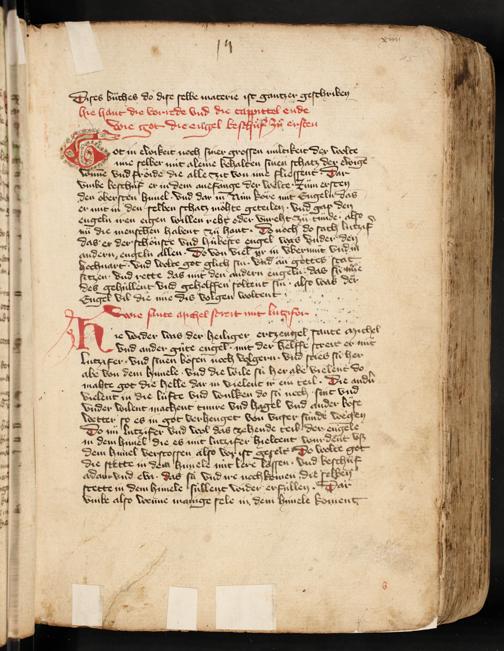 19
xviiii
Dises bůches do dise selbe materie ist gantzer geschriben
hie hant die vorrede vnd die cappittel ende
Wie got die engel beschůf zů ersten
Got in ewikeit noch siner grossen miltikeit der wolte
ime selber nit aleine behalten sinen schatz der ewige
wunne vnd fröide die alle zit von ime fliessent Dar
vmbe beschůf er in dem anefange der welte zům ersten
den obersten himel vnd dar in nún köre mit engeln das
er mit in den selben schatz möhte geteilen vnd gap den
engeln iren eigen willen reht oder vnreht zů tůnde also
nů die menschen habent zů hant To noch do sach lutzifer
das er der schönste vnd hübeste engel was vnder den
andern engeln allen To von viel er in vbermůt vnd in
hochvart vnd wolte got glich sin vnd an gottes stat
sitzen vnd rette das mit den andern engeln das sú ime
des gehullent vnd gehelffen soltent sin also was der
Engel vil die ime des volgen woltent
Wie sante michel streit mit lutzifer
Hie wider was der heiliger ertzengel sante michel
vnd ander gůte engel mit der helffe streit er mit
lutzifer vnd sinen bösen noch volgern vnd sties sú her
abe von dem himele vnd die wile sú her abe vielent do
mahte got die helle dar in vielent ir ein teil Die andern
vielent in die lúfte vnd wulken do sú noch sint vnd
vnder wilent machent tunre vnd hagel vnd ander böse
wetter so es in got verhenget von vnser súnde wegen
To nů lutzifer vnd wol das zehende teil der engele
in dem himel die es mit lutzifer hieltent wurdent vs
dem himel verstossen also vor ist geseit To wolte got
die stette in dem himele nit lere lassen vnd beschůf
adam vnd evan das sú vnd ire nochkomen die selben
stette in dem himele súllent wider erfúllen Dar
vmbe also wenne manige sele in dem himele koment
6